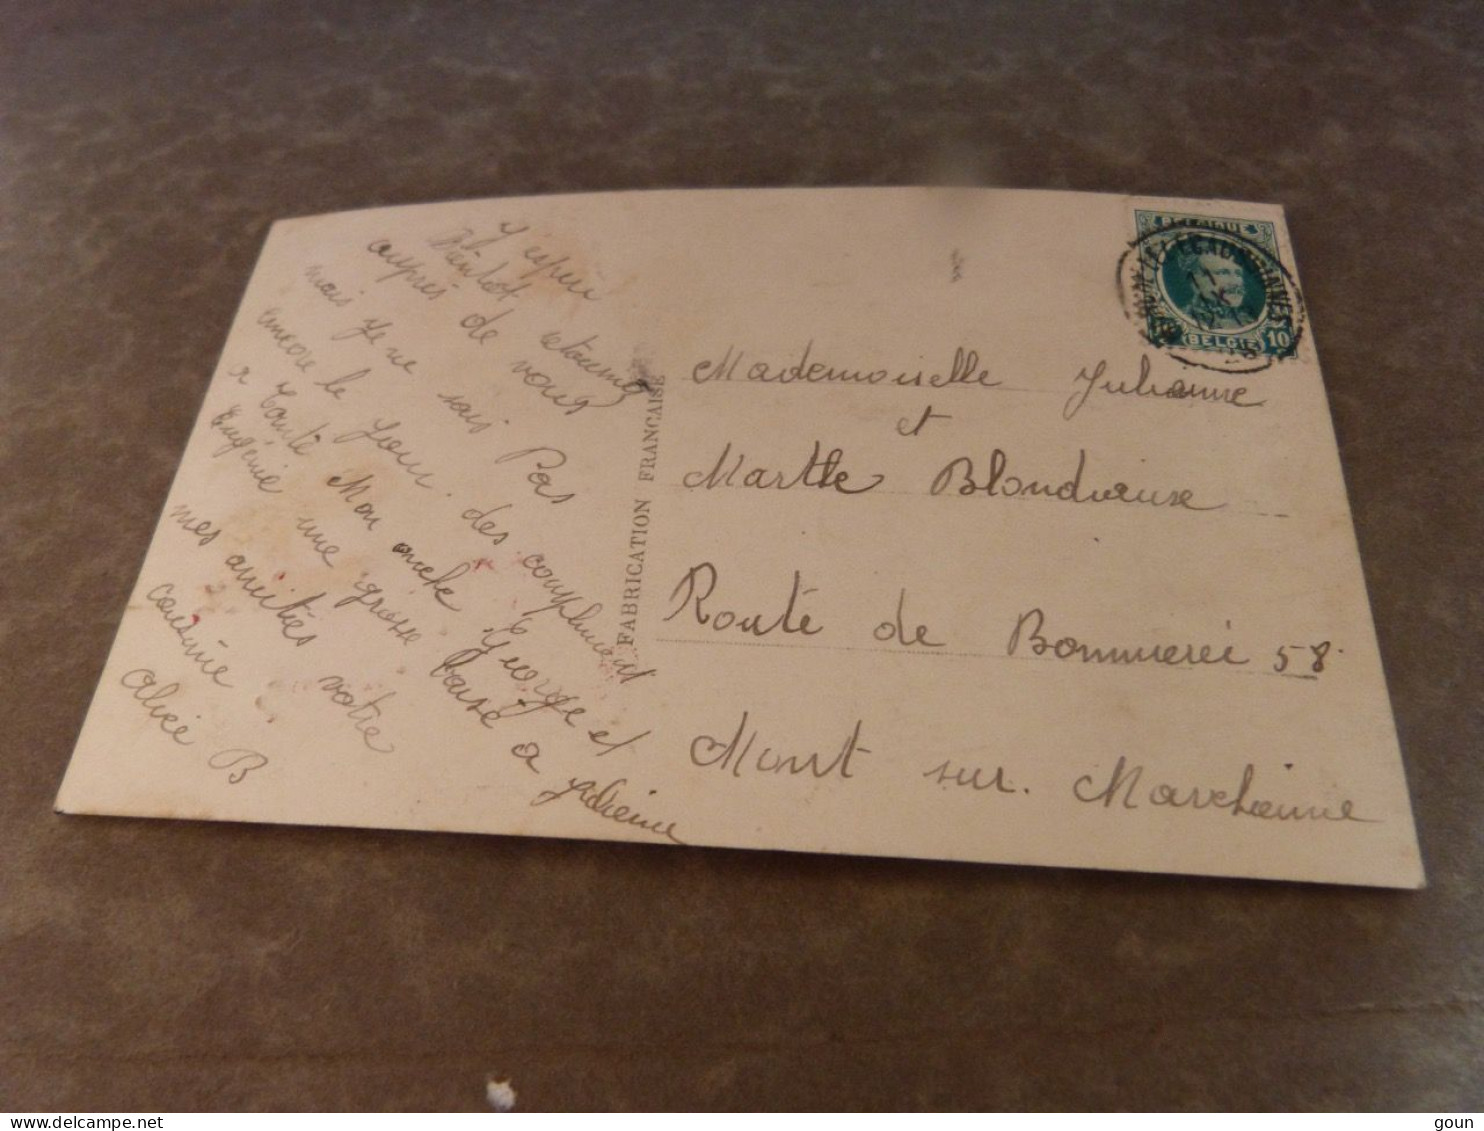 J espere
bientot retourner
auprès de vous
mais je ne sais Pas
encore le jour. des compliments
a Tante Mon oncle George et
Eugénie une grosse baise a Adrienne
mes amitiés votre
cousine
alice B
FABRICATION FRANCAISE
BELGIQUE
BELGIE 10
Mademoiselle Julianne
et
Marthe Blondiause
Route de Bommerei 58
Mont sur. Marchienne
goun